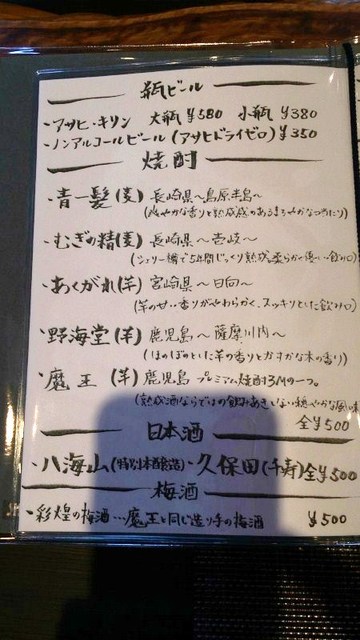 瓶ビール
・アサヒ・キリン 大瓶¥580 小瓶¥380
・ノンアルコールビール(アサヒドライゼロ)¥350
焼酎
・青一髪(麦) 長崎県〜島原半島〜
(爽やかな香りと熟成感のあるまろやかな
・むぎの精(麦) 長崎県〜壱岐〜
(シェリー樽で5年間じっくり熟成、柔らかく優しい飲み口)
・あくがれ(芋) 宮崎県〜日向〜
(芋の甘い香りがやわらかく、スッキリとした飲み口)
・野海棠(芋) 鹿児島〜薩摩川内〜
(ほのぼのとした芋の香りとかすかな木の香り)
・魔王(芋) 鹿児島 プレミアム焼酎3Mの一つ。
(熟成酒ならではの飲みあきしない穏やかな風
全¥500
日本酒
・八海山(特別本醸造)・久保田(千寿)全¥500
梅酒
・彩煌の梅酒…魔王と同じ造り手の梅酒 ¥500